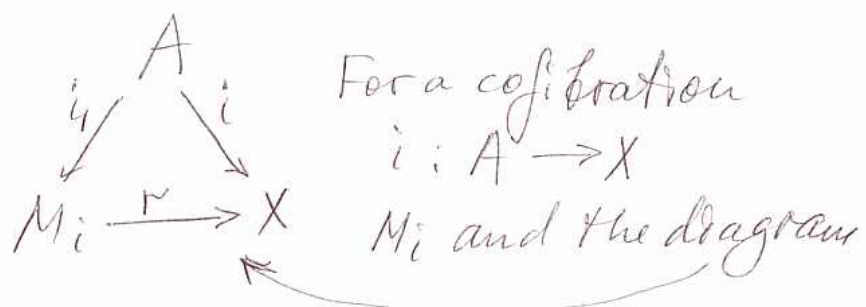 A
i₁ i
M_i r X
For a cofibration
i : A → X
M_i and the diagram